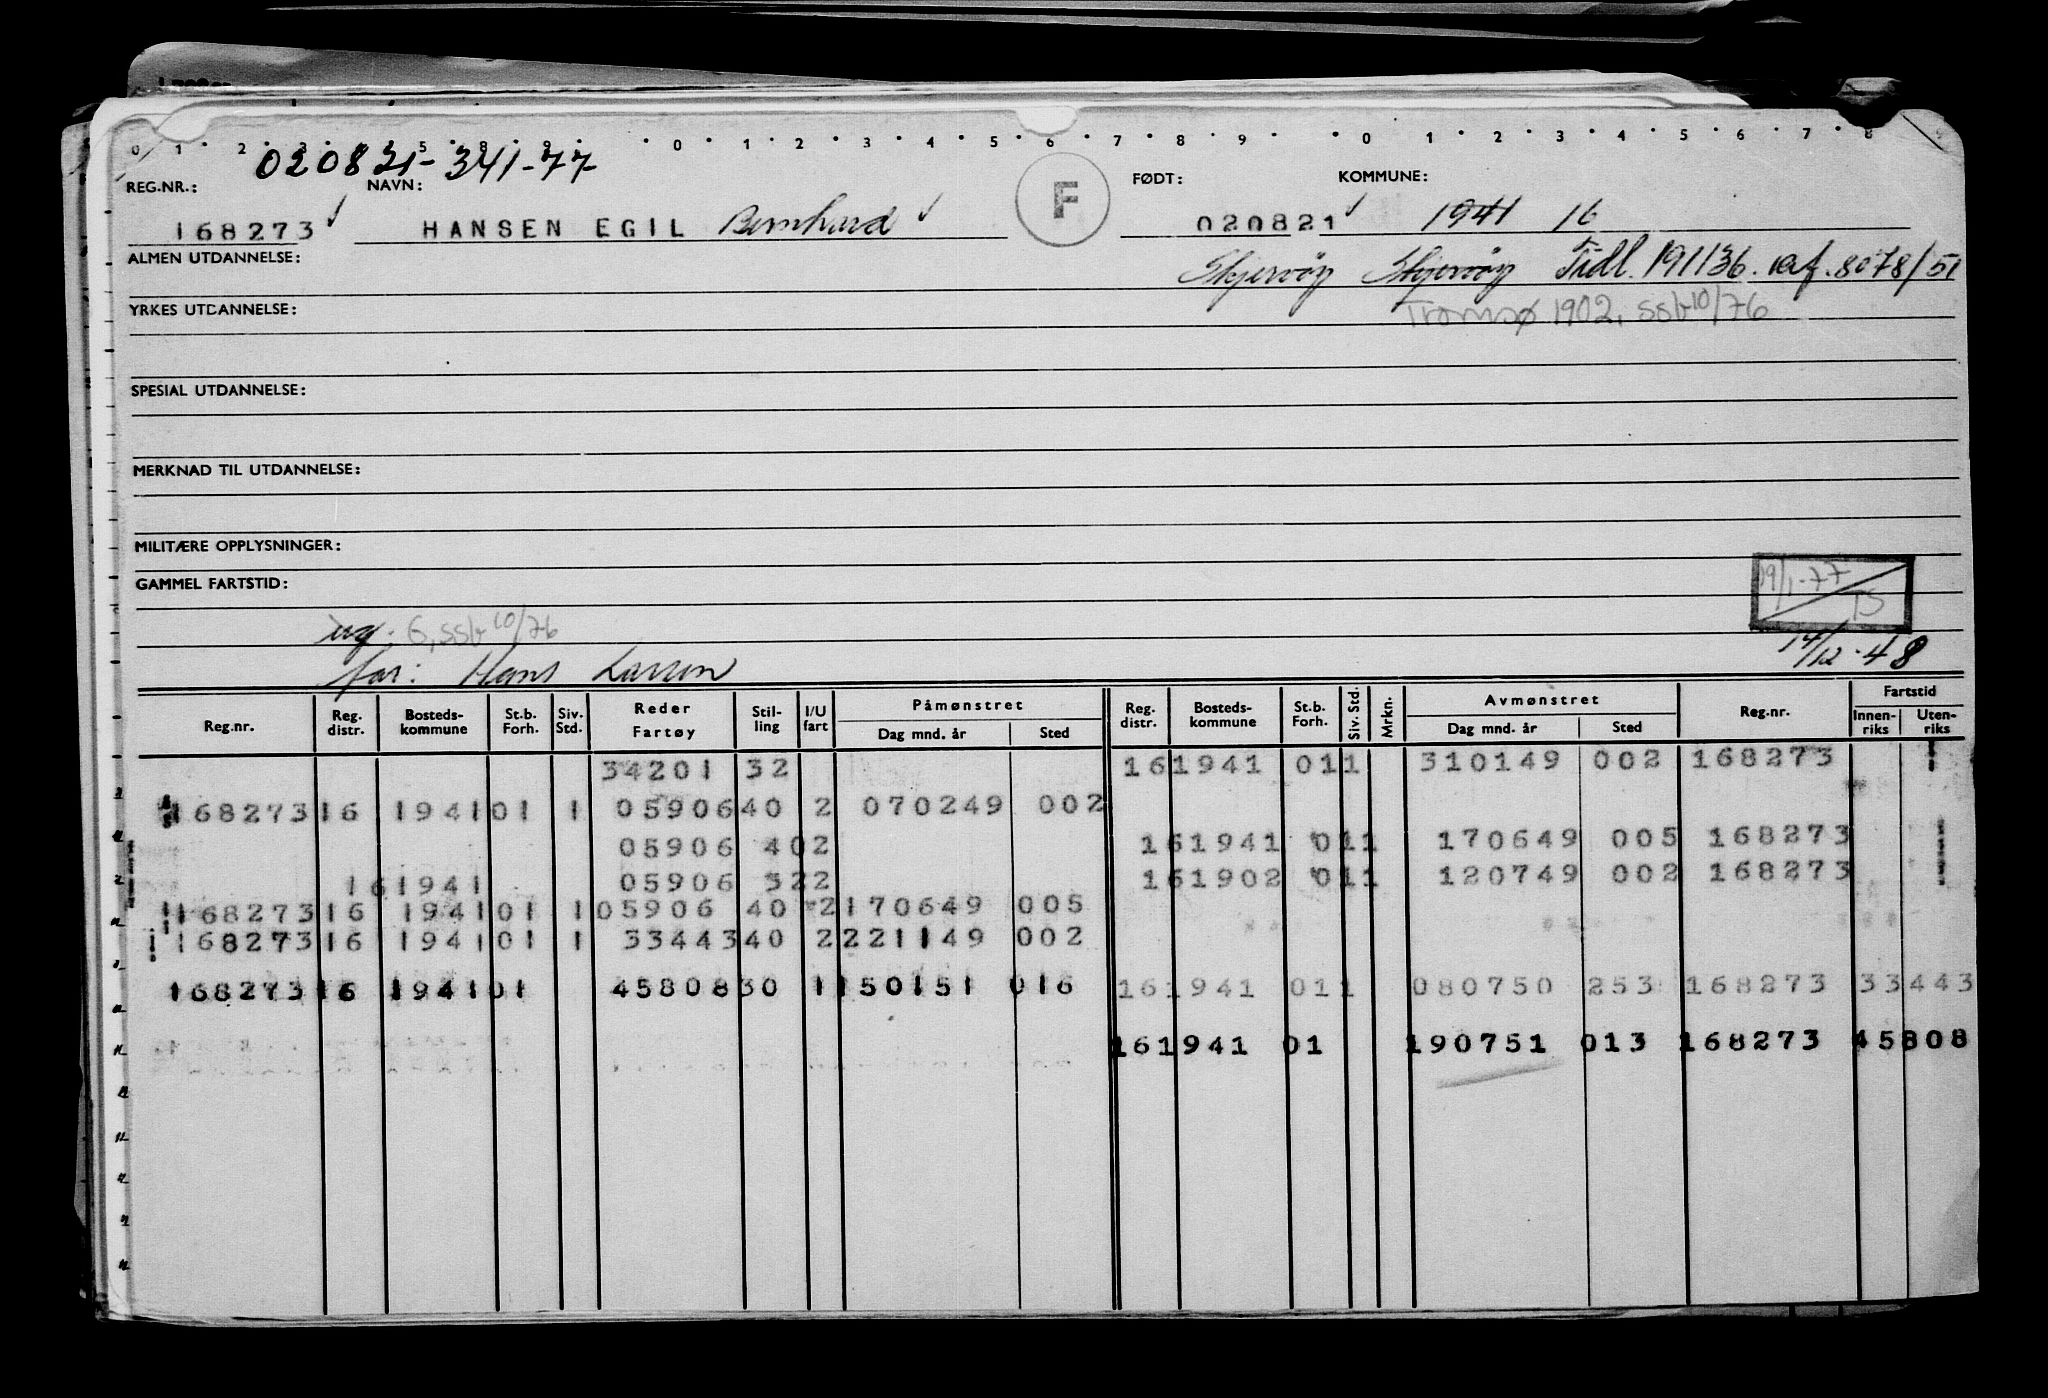 0 1 2 3 4 5 8 9 0 1 2 3 4 5 6 7 8 9 0 1 2 3 4 5 6 7 8 9
020821-341-77
REG.NR.: NAVN: F FØDT: KOMMUNE:
168273 HANSEN EGIL Bernhard 020821 1941 16
ALMEN UTDANNELSE: Skjervöy Skjervöy Fidl. 191136. af. 8078/51
YRKES UTDANNELSE: Tromsø 1902, ssb 10/76
SPESIAL UTDANNELSE:
MERKNAD TIL UTDANNELSE:
MILITÆRE OPPLYSNINGER:
GAMMEL FARTSTID: 19/1-77 TS
ug. G, ssb 10/76 14/12-48
far: Hans Larsen
Reg.nr. Reg. distr. Bosteds-kommune St.b. Forh. Siv. Std. Reder Fartøy Stil-ling I/U fart Påmønstret Dag mnd. år Sted Reg. distr. Bosteds-kommune St.b. Forh. Siv. Std. Mrkn. Avmønstret Dag mnd. år Sted Reg.nr. Fartstid Innen-riks Uten-riks
34201 32 161941 011 310149 002 168273
168273 16 1941 01 1 05906 40 2 070249 002
05906 40 2 161941 011 170649 005 168273
161941 05906 32 2 161902 011 120749 002 168273
168273 16 1941 01 1 05906 40 2 170649 005
168273 16 1941 01 1 33443 40 2 221149 002
168273 16 1941 01 45808 30 1 150151 016 161941 011 080750 253 168273 33443
161941 01 190751 013 168273 45808